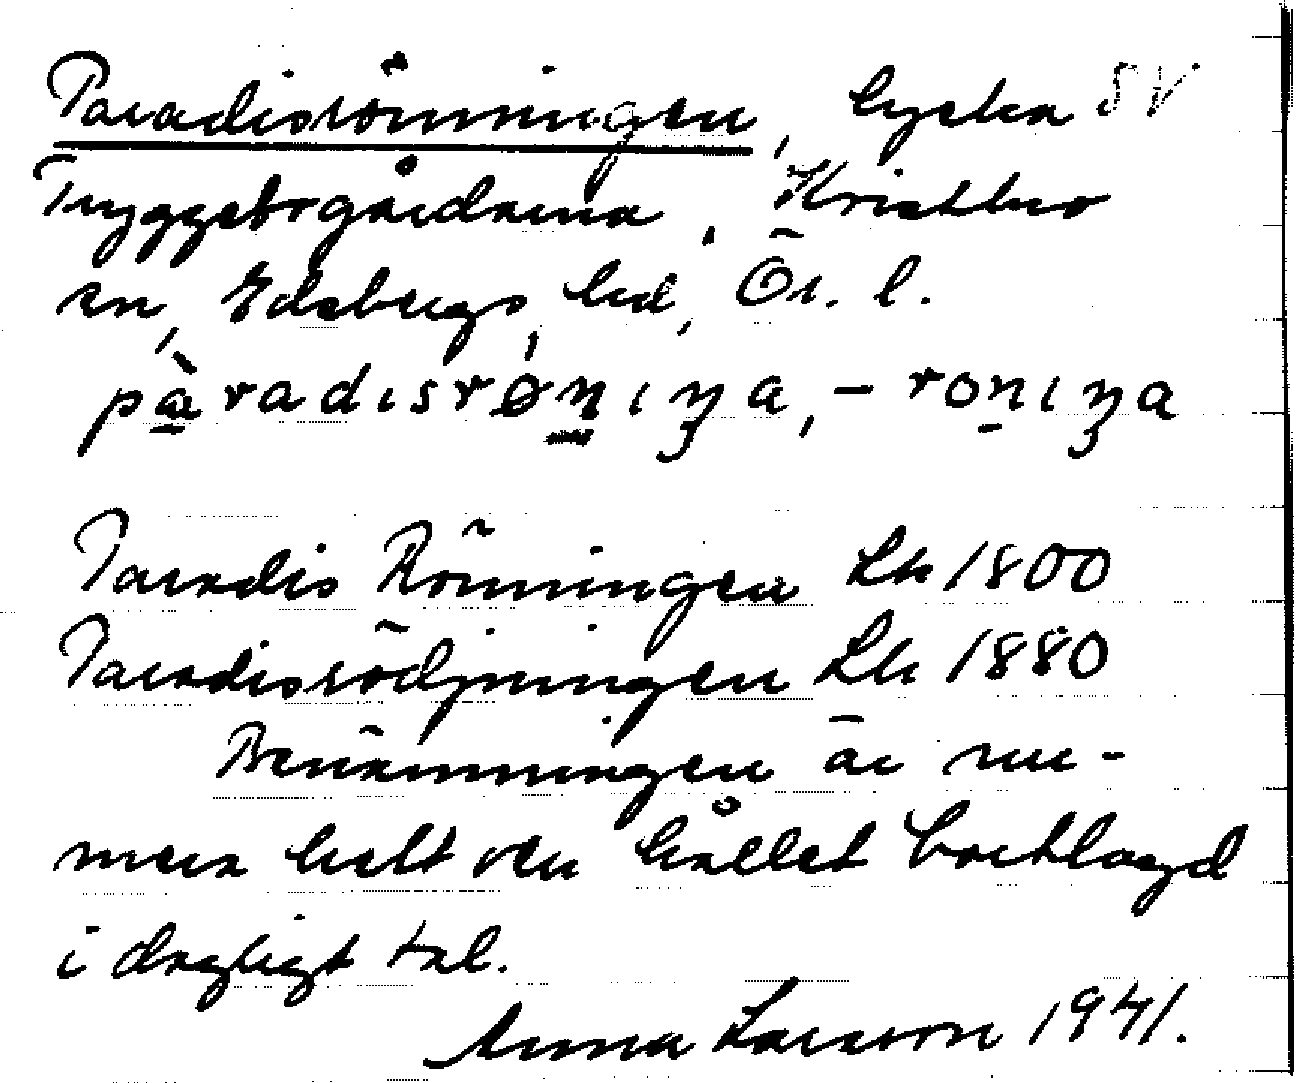 Paradisrönningen, lycka SV
Tryggebogårdarna, Knistbro
sn, Edsbergs, hd, Ör. l.
pàradisrøniŋa, -roniŋa
Paradis Rönningen Lh 1800
Paradisrödjningen Lh 1880
Benämningen är nu-
mera helt och hållet bortlagd
i dagligt tal.
Anna Larsson 1941.